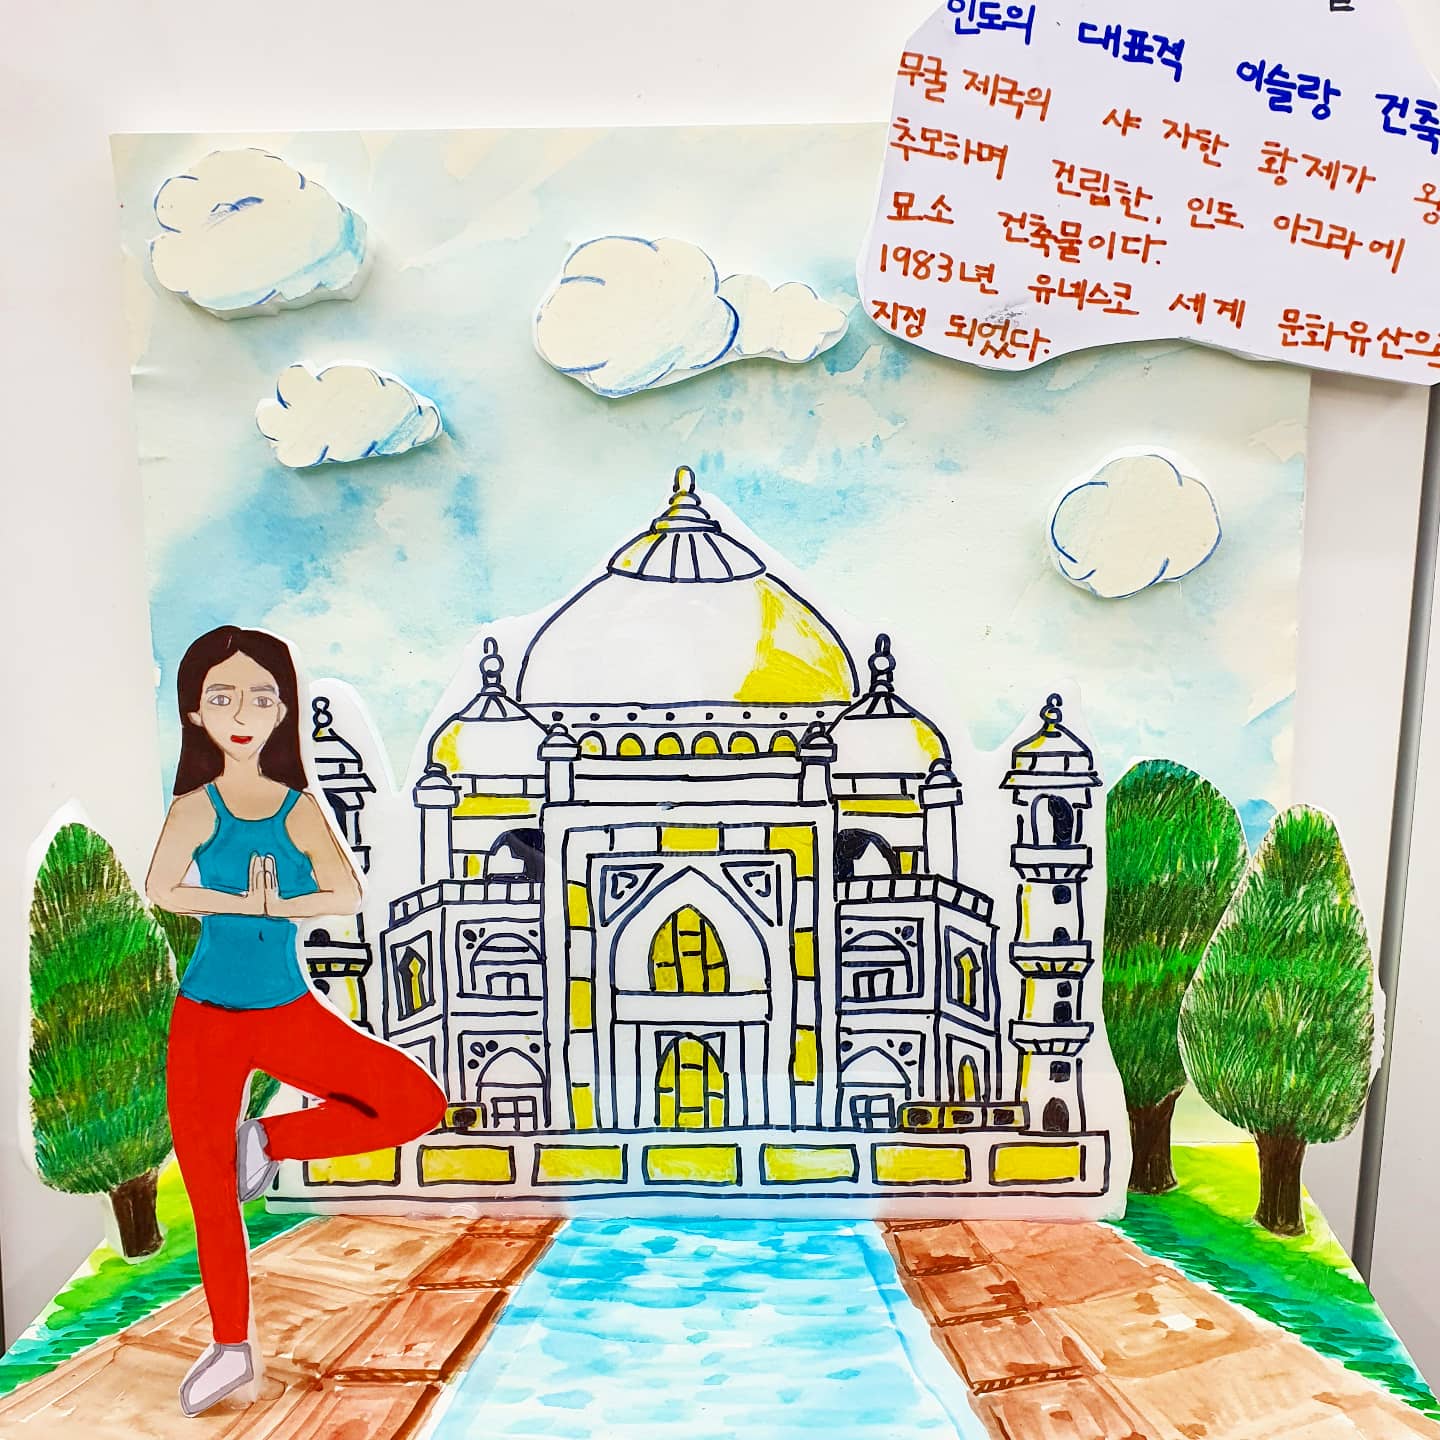 인도의 대표적 이슬람 건축
무굴 제국의 샤 자한 황제가 왕
추모하며 건립한, 인도 아그라에
묘소 건축물이다.
1983년 유네스코 세계 문화유산으
지정 되었다.